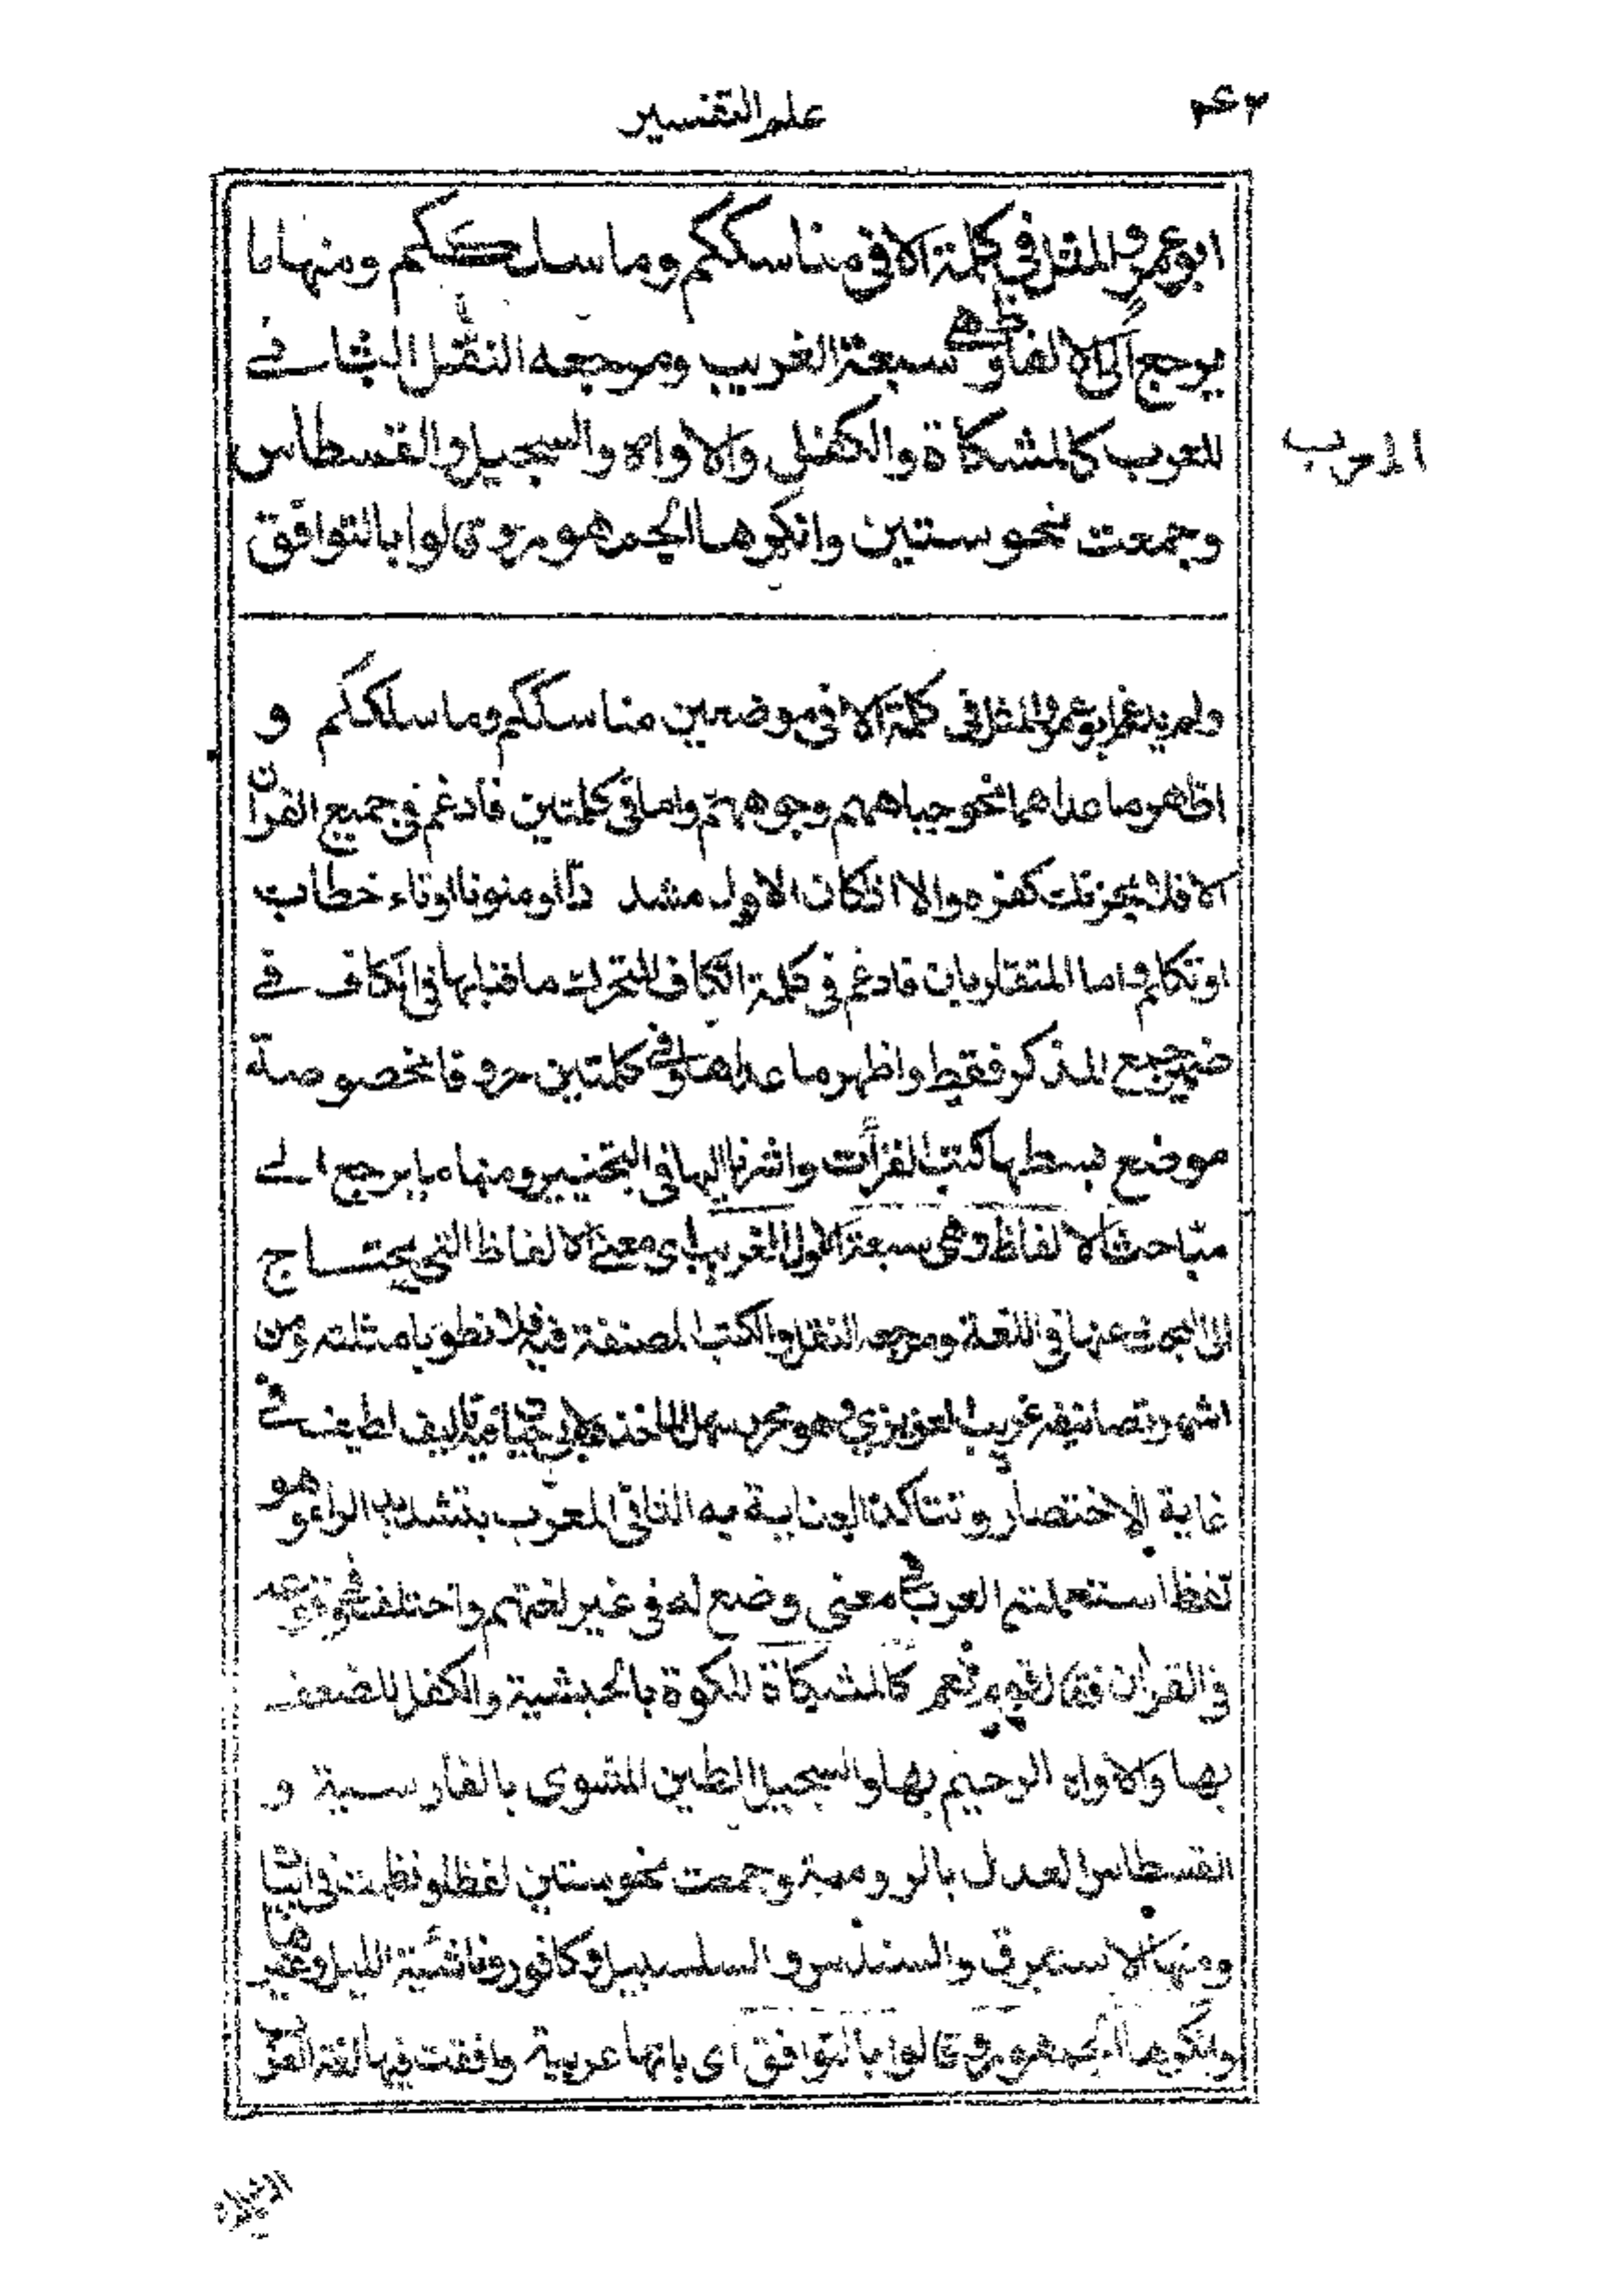 علم التفسير
ابو عمرو المثل في كلمة الا في مناسككم وما سلككم ومنها ما
يرجع الى الالفاظ وهي سبعة الغريب ومرجعه النقل الثاني
المعرب كالمشكاة والكفل والاواه والسجيل والقسطاس
المعرب
وجمعت نحو ستين وانكرها الجمهور وقالوا بالتوافق
ولم يدغم ابو عمرو المثل في كلمة الا في موضعين مناسككم وما سلككم و
اظهر ما عداهما نحو جباههم وجوههم واما في كلمتين فادغم في جميع القرآن
الا فلا يحزنك كفره والا اذا كان الاول مشددا او منونا او تاء خطاب
او تكلم واما المتقاربان فادغم في كلمة القاف المتحرك ما قبلها في الكاف في
ضمير جمع المذكر فقط واظهر ما عداها وفي كلمتين حروفا مخصوصة
موضع بسطها كتب القرآت واشرنا اليها في التحبير ومنها ما يرجع الى
مباحث الالفاظ وهي سبعة الاول الغريب اي معنى الالفاظ التي يحتاج
الى البحث عنها في اللغة ومرجعه النقل والكتب المصنفة فيه فلا نطول بامثلته ومن
اشهر تصانيفه غريب العزيزي وهو محرر سهل الماخذ ولابي حيان تاليف لطيف في
غاية الاختصار وتتاكد العناية به الثاني المعرب بتشديد الراء وهو
لفظ استعملته العرب في معنى وضع له في غير لغتهم واختلف في وقوعه
في القرآن فقال قوم نعم كالمشكاة للكوة بالحبشية والكفل للضعف
بها والاواه الرحيم بها والسجيل الطين المشوى بالفارسية و
القسطاس العدل بالرومية وجمعت نحو ستين لفظا ونظمت في ابيات
ومنها الاستبرق والسندس والسلسبيل وكافور وناشئة الليل وغيرها
وانكرها الجمهور وقالوا بالتوافق اى بانها عربية وافقت فيها لغة العرب